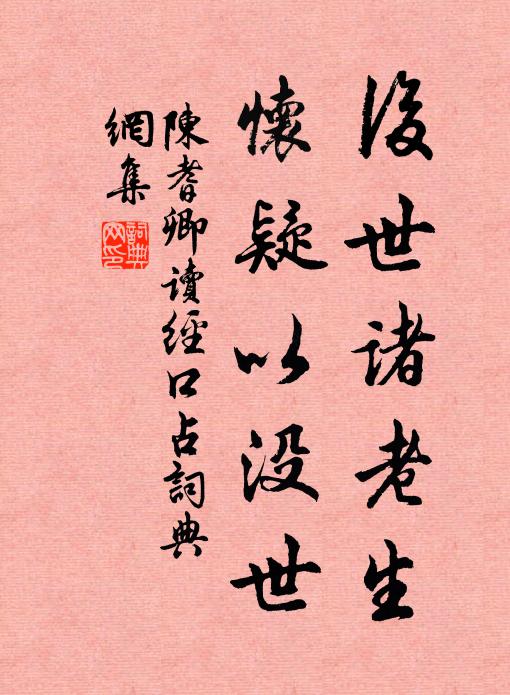 後世诸老生
懷疑以没世
陳耆卿讀經口占詞典
網集
詞典網印